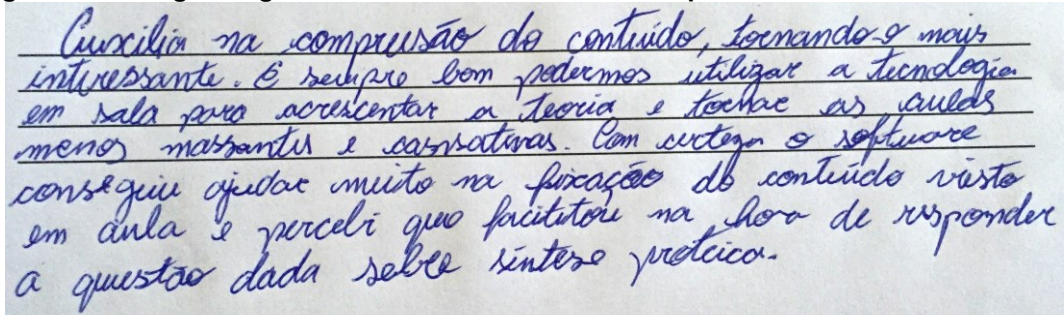 Auxilia na compreensão do conteúdo, tornando-o mais
interessante. É sempre bom podermos utilizar a tecnologia
em sala para acrescentar a teoria e tornar as aulas
menos massantes e cansativas. Com certeza o software
conseguiu ajudar muito na fixação do conteúdo visto
em aula e percebi que facilitou na hora de responder
a questão dada sobre síntese proteica.